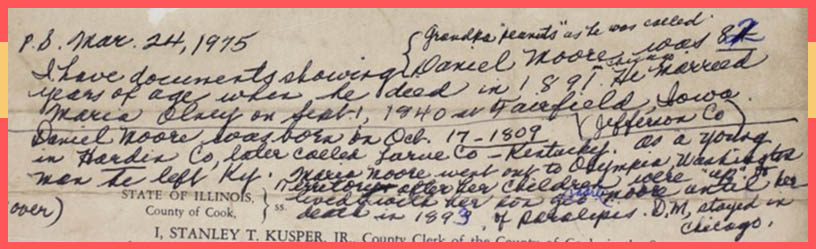 P.S. Mar. 24, 1975
{ Grandpa "Peanuts" as he was called
I have documents showing { Daniel Moore was 82
years of age when he died in 1891. He married
Maria Olney on Sept 1, 1940 at Fairfield, Iowa.
(Jefferson Co)
Daniel Moore was born on Oct. 17-1809
in Hardin Co, later called Larue Co - Kentucky. As a young
man he left Ky. Maria Moore went out to Olympia Washington
Territory after her children were "up" &
lived with her son Moore until her
death in 1893, of paralipis. D.M. stayed in
Chicago.
(over)
STATE OF ILLINOIS,
County of Cook, } ss.
I, STANLEY T. KUSPER, JR., County Clerk of the County of